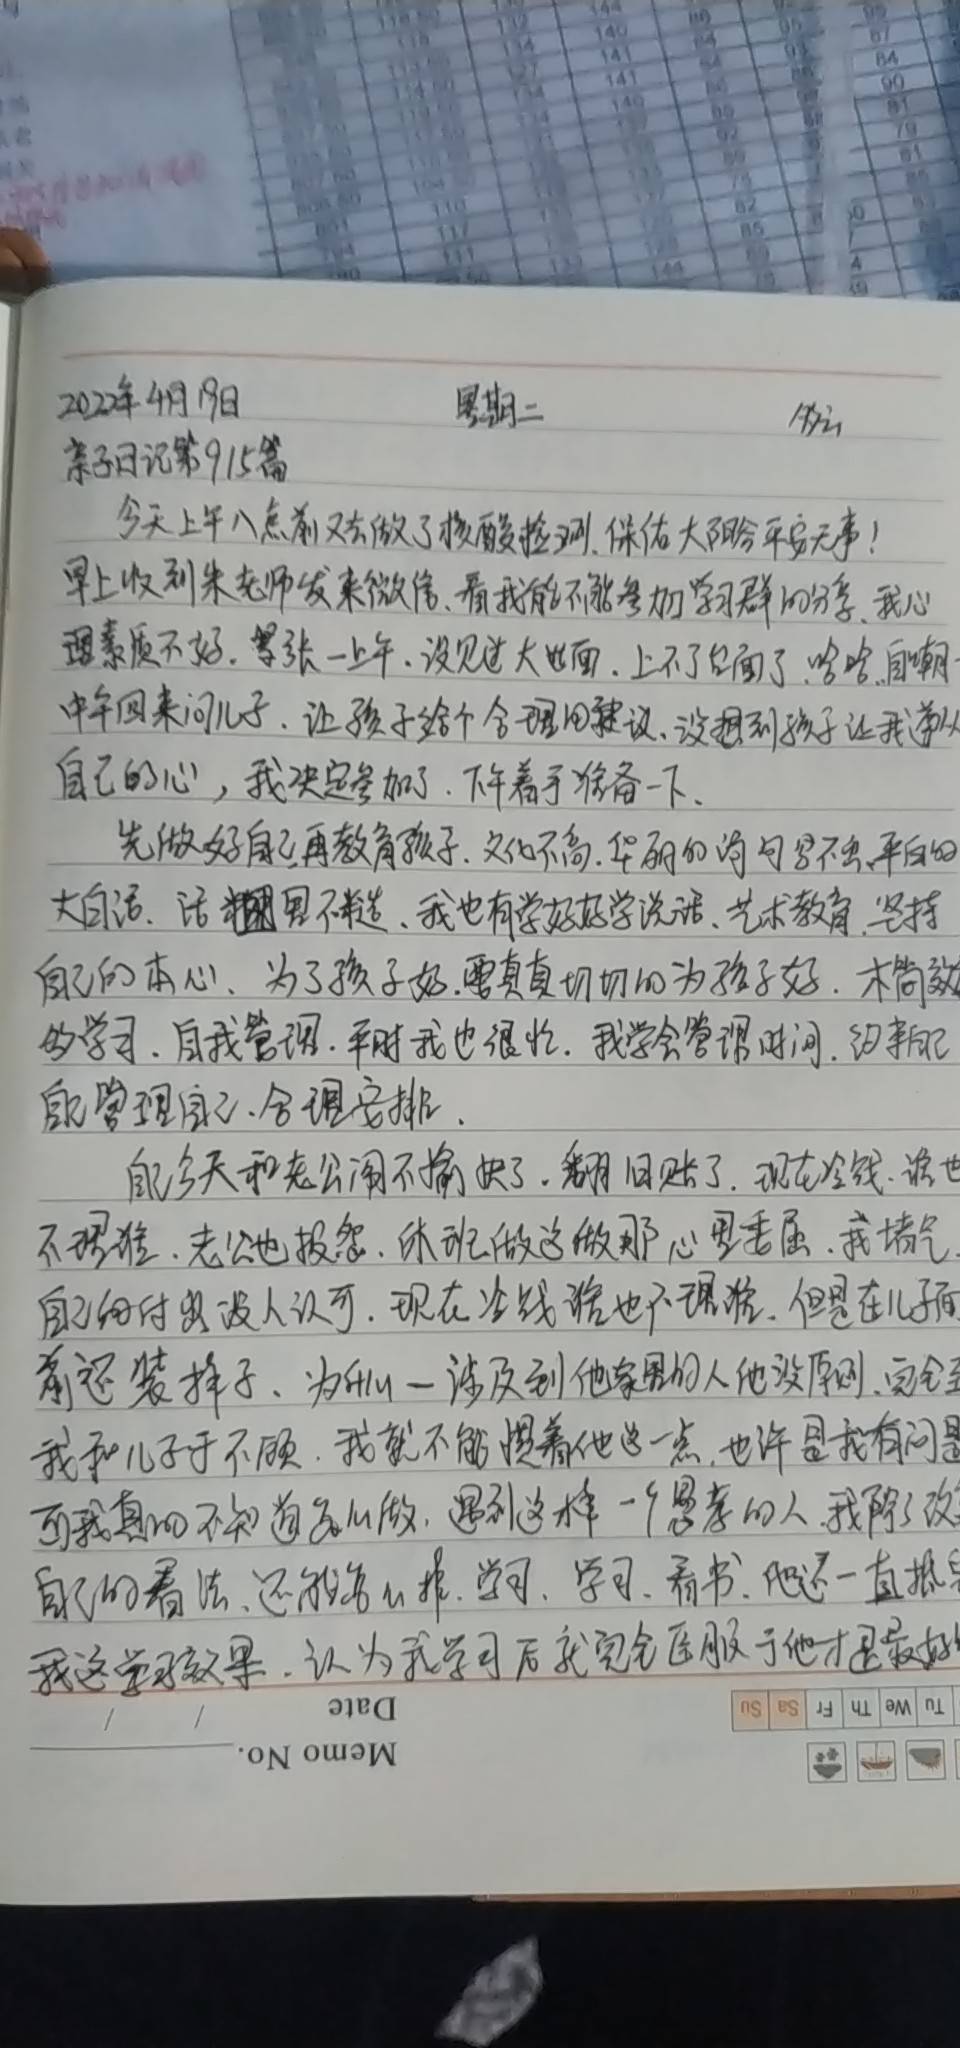 2022年4月19日 星期二
亲子日记第915篇
今天上午八点前又去做了核酸检测、保佑大阳哈平安无事！
早上收到朱老师发来微信、看我能不能参加学习群的分享、我心
理素质不好、紧张一上午、没见过大世面、上不了台面了、哈哈、自嘲
中午回来问儿子、让孩子给个合理的建议、没想到孩子让我遵从
自己的心，我决定参加了、下午着手准备一下、
先做好自己再教育孩子、文化不高、华丽的词句写不出、平白的
大白话、话糙理不糙、我也有学好好学说话、艺术教育、坚持
自己的本心、为了孩子好、要真真切切的为孩子好、
的学习、自我管理、平时我也很忙、我学会管理时间、约束自己
自己管理自己、合理安排、
自己今天和老公闹不愉快了、翻旧账了、现在冷战、谁也
不理谁、老公也报怨、休班做这做那心里委屈、我堵气、
自己的付出没人认可、现在冷战谁也不理谁、但是在儿子面
前还装样子、为什么一涉及到他家里的人他没原则、完全至
我和儿子于不顾、我就不能惯着他这一点、也许是我有问题
可我真的不知道怎么做、遇到这样一个愚孝的人、我除了改变
自己的看法、还能怎么样、学习、学习、看书、他还一直抵
我这学习效果、认为我学习后就完全臣服于他才是最好的
Date / /
Memo No.
Tu We Th Fr Sa Su